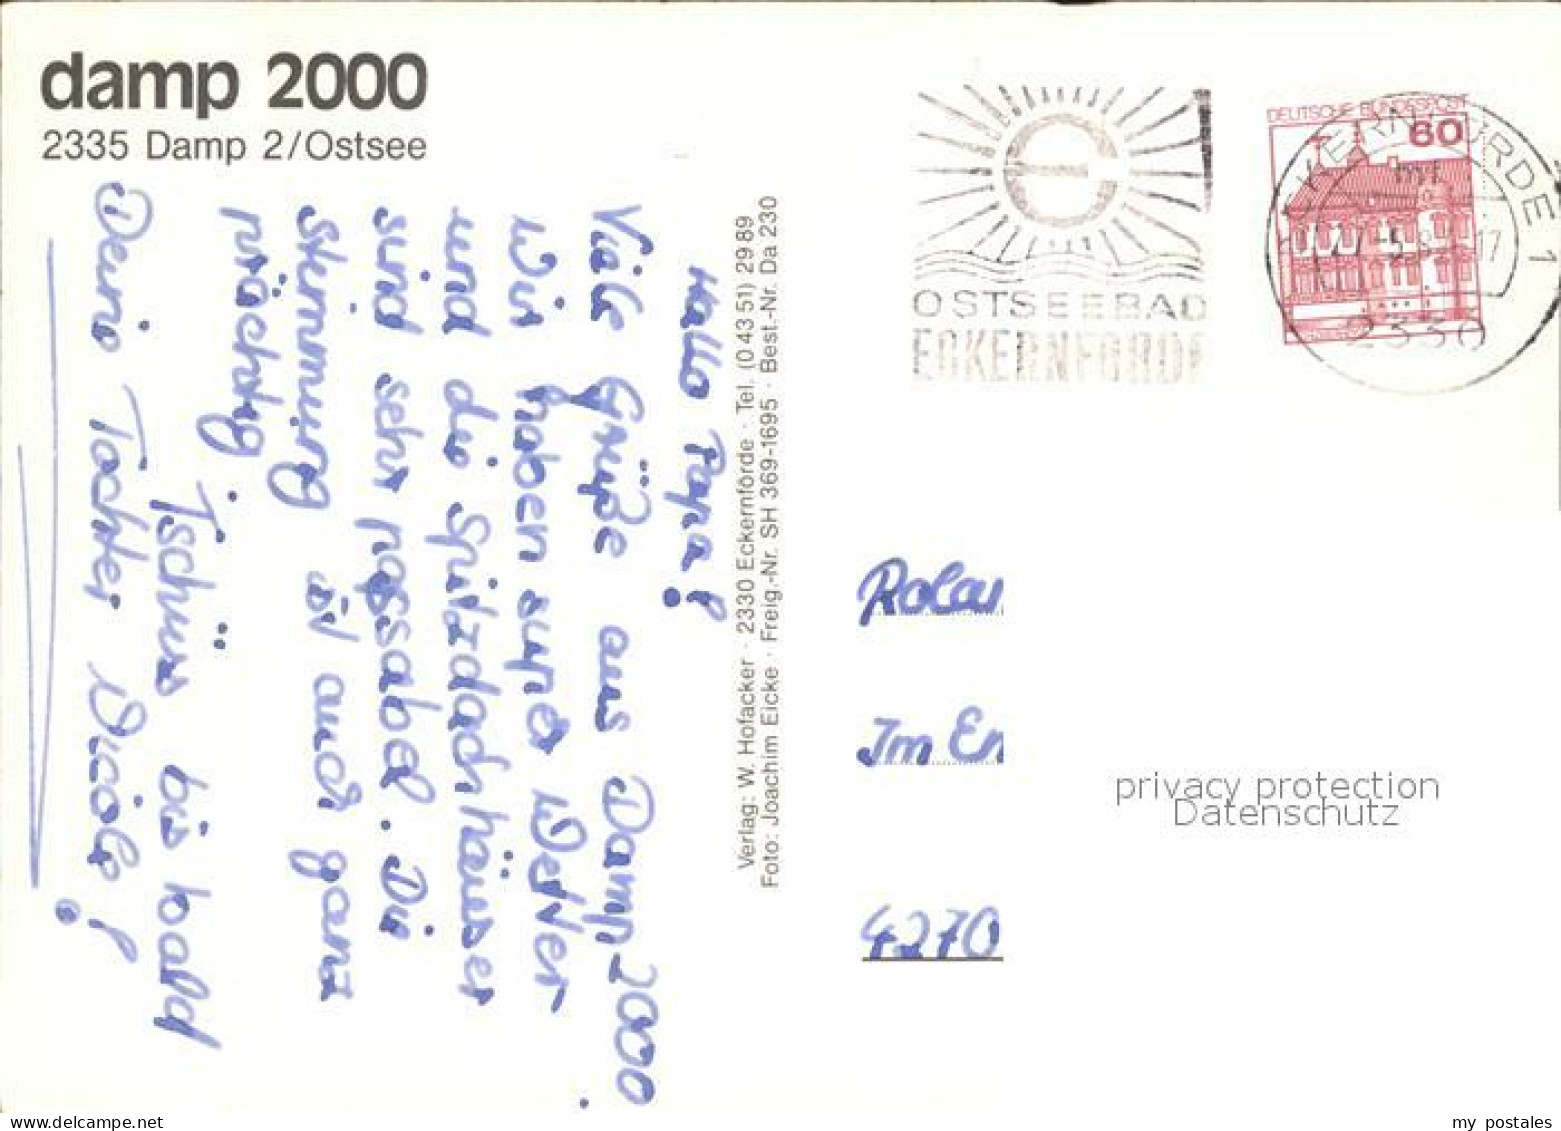 damp 2000
2335 Damp 2/Ostsee
Hallo Papa!
Viele Grüße aus Damp 2000.
Wir haben super Wetter
und die Spitzdachhäuser
sind sehr passabel. Die
Stimmung ist auch ganz
prächtig.
Tschüss bis bald
Deine Tochter Nicole!
Verlag: W. Hofacker · 2330 Eckernförde · Tel. (0 43 51) 29 89
Foto: Joachim Eicke · Freig.-Nr. SH 369-1695 · Best.-Nr. Da 230
OSTSEEBAD
ECKERNFÖRDE
DEUTSCHE BUNDESPOST
60
ECKERNFÖRDE 1
2330
Rolan
Im En
4270
privacy protection
Datenschutz
delcampe.net
my_postales